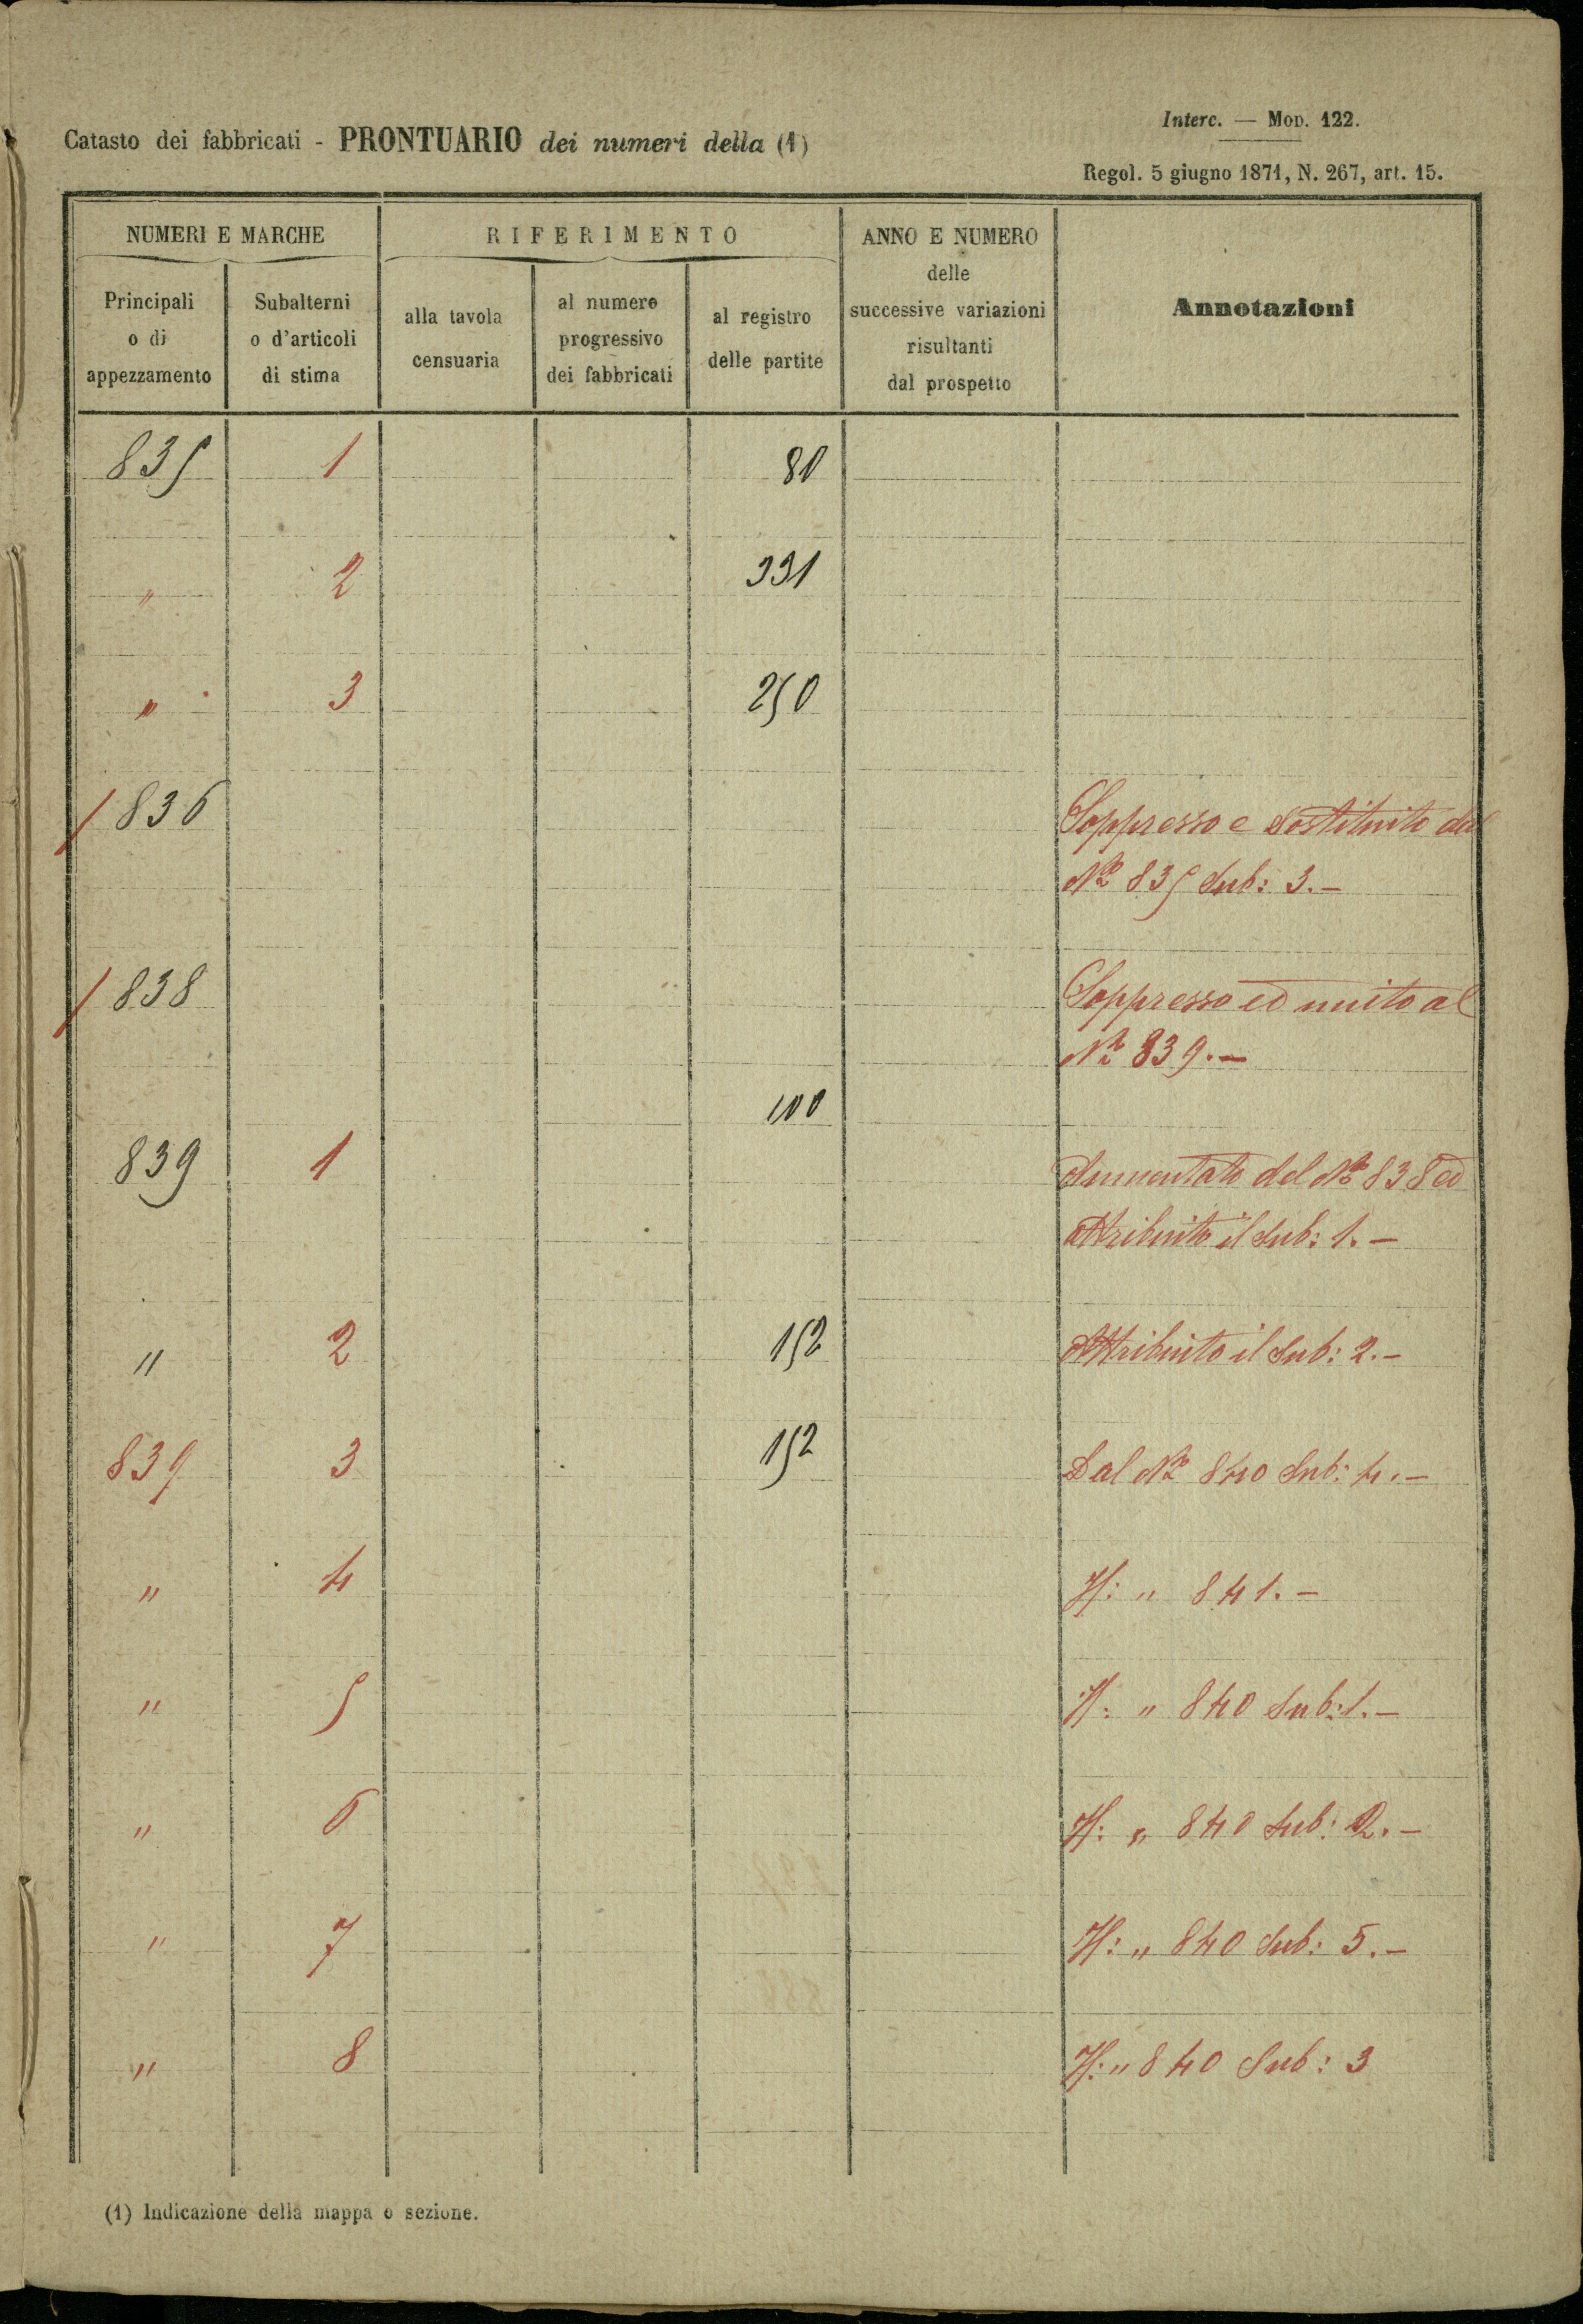 Interc. — MOD. 122.
Catasto dei fabbricati - PRONTUARIO dei numeri della (1)
Regol. 5 giugno 1871, N. 267, art. 15.
NUMERI E MARCHE
RIFERIMENTO
ANNO E NUMERO
delle
successive variazioni
risultanti
dal prospetto
Annotazioni
Principali
o di
appezzamento
Subalterni
o d'articoli
di stima
alla tavola
censuaria
al numero
progressivo
dei fabbricati
al registro
delle partite
835 1 80
" 2 331
" 3 250
/ 836 Soppresso e sostituito dal
N.o 835 Sub: 3.-
/ 838 Soppresso ed unito al
N.o 839.-
100
839 1 Aumentato del N.o 838 ed
attribuito il Sub: 1.-
" 2 152 Attribuito il Sub: 2.-
839 3 152 Dal N.o 840 Sub: 4.-
" 4 " 841.-
" 5 " 840 Sub: 1.-
" 6 " 840 Sub: 2.-
" 7 " 840 Sub: 5.-
" 8 " 840 Sub: 3
(1) Indicazione della mappa o sezione.